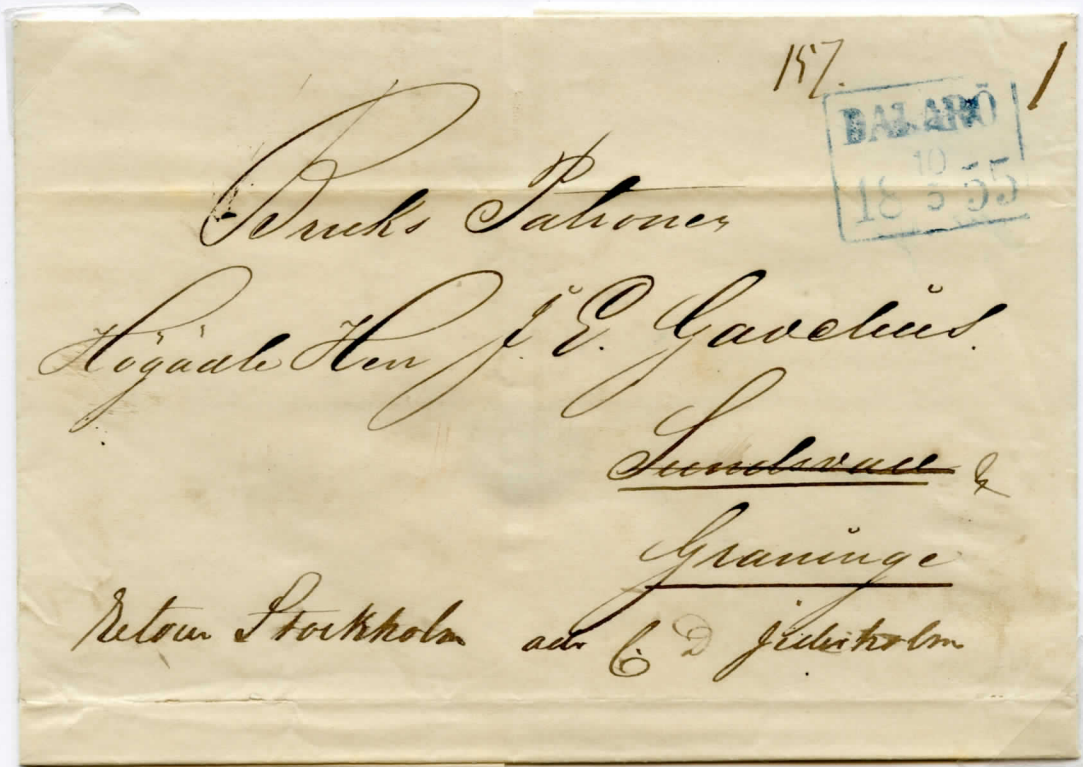 157.
1
DALARÖ
10
18 5 55
Bruks Patronen
Högädle Herr J. E. Gavelius.
Sundsvall &
Graninge
Retour Stockholm adr C. D.